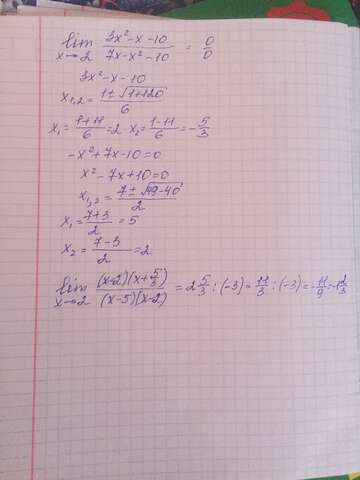 lim x→2 (3x²-x-10)/(7x-x²-10) = 0/0
3x²-x-10
x₁,₂ = (1±√(1+120))/6
x₁ = (1+11)/6 = 2 x₂ = (1-11)/6 = -5/3
-x²+7x-10=0
x²-7x+10=0
x₁,₂ = (7±√(49-40))/2
x₁ = (7+3)/2 = 5
x₂ = (7-3)/2 = 2
lim x→2 ((x-2)(x+5/3))/((x-5)(x-2)) = 2 5/3 : (-3) = 11/3 : (-3) = -11/9 = -1 2/3